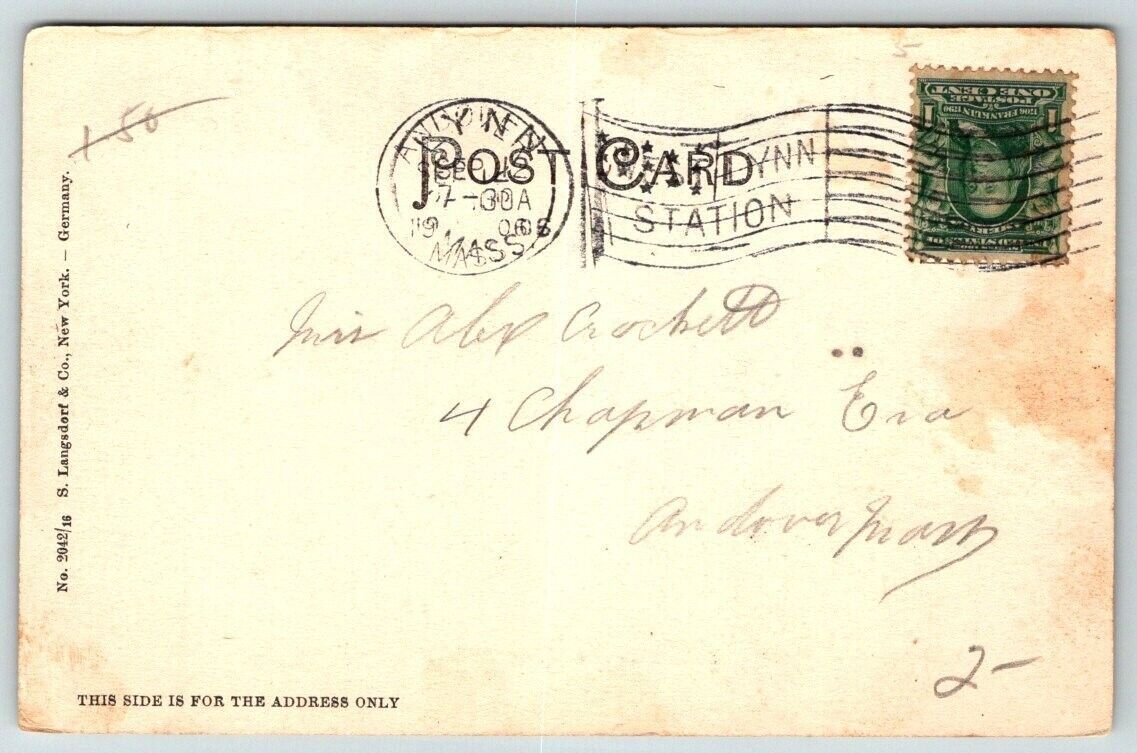 1.50
5
POST CARD
LYNN
SEP
7-30A
1906
MASS.
LYNN
STATION
ONE CENT
POSTAGE
1706 FRANKLIN 1790
1 1
Miss Alex Crockett
4 Chapman
Andover Mass
2-
No. 2042/16 S. Langsdorf & Co., New York. — Germany.
THIS SIDE IS FOR THE ADDRESS ONLY